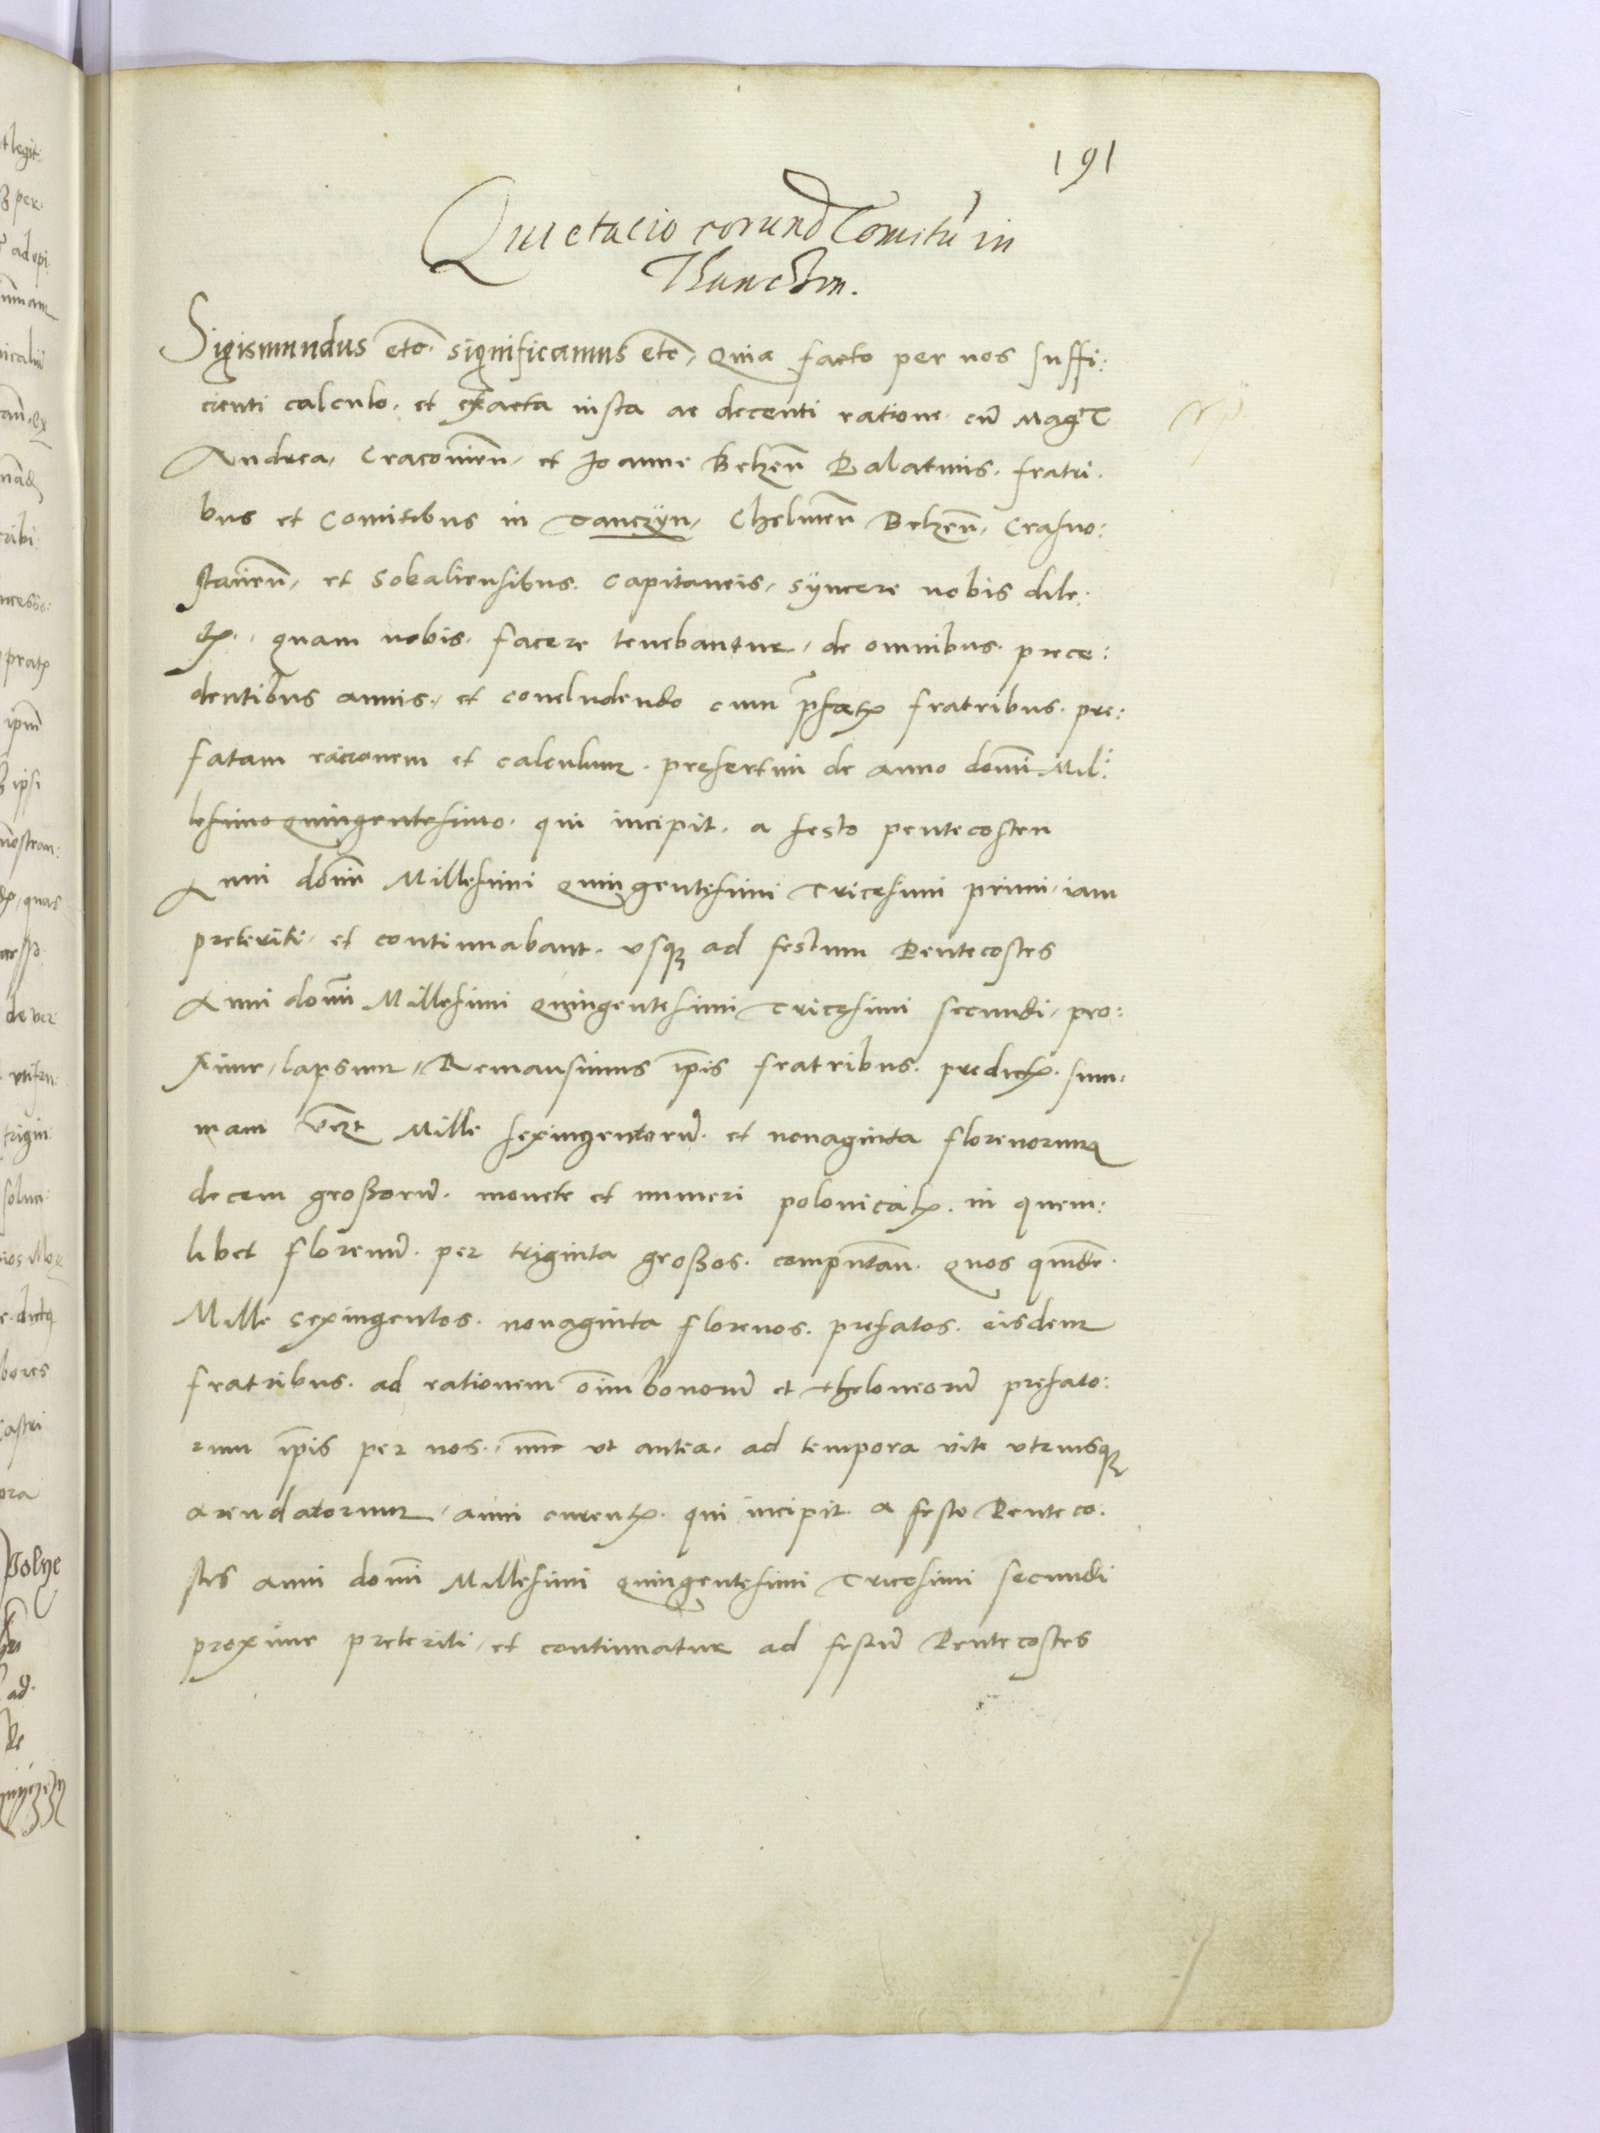 191
Quietacio eorund Comitu in
Thanczin.
Sigismundus etc. significamus etc, Quia facto per nos suffi:
cienti calculo, et exacta iusta ac decenti ratione cu Mag
Andrea, Cracovien, et Joanne Belzen Palatinis, fratri.
bus et Comitibus in Tanczyn, Chelmen Belzen, Crasno:
stavien, et Sokaliensibus Capitaneis, syncere nobis dile:
ctis, quam nobis facere tenebantur, de omnibus prece:
dentibus annis, et concludendo cum pfatis fratribus pre:
fatam racionem et calculum presertim de anno domi Mil:
lesimo quingentesimo qui incipit a festo pentecosten
Anni domi Millesimi quingentesimi Tricesimi primi, iam
preteriti, et continuabant usq ad festum Pentecostes
Anni domi Millesimi quingentesimi Tricesimi secundi, pro:
xime, lapsum, Remansimus ipis fratribus predictis sum:
mam Mille sexingentoru et nonaginta florenorum
decem grossoru monete et numeri polonicalis in quem:
libet florenu per triginta grossos computan. Quos quide
Mille sexingentos nonaginta florenos prefatos eisdem
fratribus ad rationem oim bonoru et theloneoru prefato:
rum ipis per nos, nunc ut antea, ad tempora vite utriusq
arendatorum, anni currentis qui incipit a festo Penteco.
stes anni domi Millesimi quingentesimi Tricesimi secundi
proxime preteriti, et continuatur ad festu Pentecostes